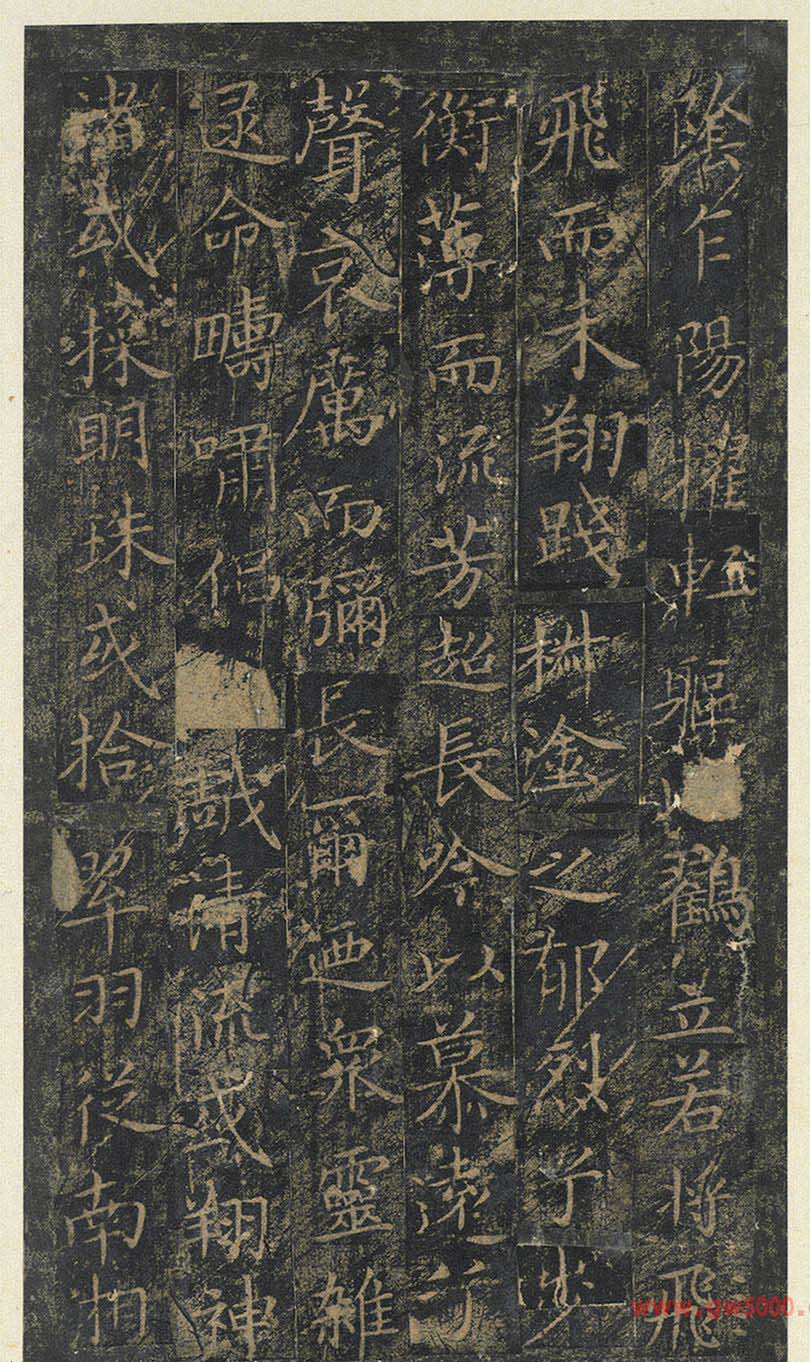 陰乍陽擢輕軀鶴立若將飛
飛而未翔踐椒塗之郁烈兮步
衡薄而流芳超長吟以慕遠兮
聲哀厲而彌長爾迺衆靈雜
遝命疇嘯侶戲清流或翔神
渚或採明珠或拾翠羽從南湘
www.gw5000.